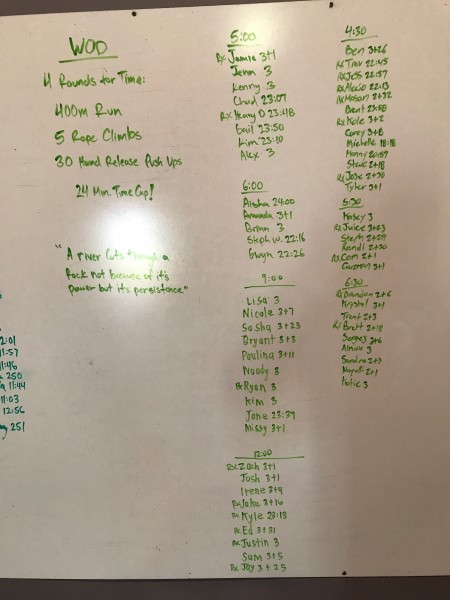 WOD
4 Rounds for Time:
400m Run
5 Rope Climbs
30 Hand Release Push Ups
24 Min. Time Cap!
"A river cuts through a
rock not because of it's
power but it's persistence"
5:00
Rx Jamie 3+1
Jenn 3
Kenny 3
Chad 23:07
Rx Henry D 23:48
Gail 23:50
Kim 23:10
Alex 3
6:00
Aisha 24:00
Amanda 3+1
Brian 3
Steph W. 22:16
Gwyn 22:26
9:00
Lisa 3
Nicole 3+7
Sasha 3+23
Bryant 3+3
Paulina 3+11
Woody 3
Rx Ryan 3
Kim 3
Jane 23:39
Missy 3+1
12:00
Rx Zach 3+1
Josh 3+1
Irene 3+9
Rx Jake 3+16
Rx Kyle 23:13
Rx Ed 3+31
Rx Justin 3
Sam 3+5
Rx Jay 3+25
4:30
Ben 3+26
Rx Trav 22:45
Rx Jess 22:57
Rx Alecio 22:13
Rx Mason 2+32
Brent 23:58
Rx Kole 3+2
Corey 3+8
Michelle 18:18
Manny 20:57
Steve 2+18
Rx Jose 2+30
Tyler 3+1
5:30
Kasey 3
Rx Juice 3+23
Steph 2+29
Randi 2+30
Rx Cam 2+1
Guzman 3+1
6:30
Rx Brandon 2+6
Krystal 3+1
Trent 2+3
Rx Brett 2+18
Sergey 3+6
Sandra 2+3
Katie 3
2:01
11:57
11:46
250
11:44
11:03
12:56
251